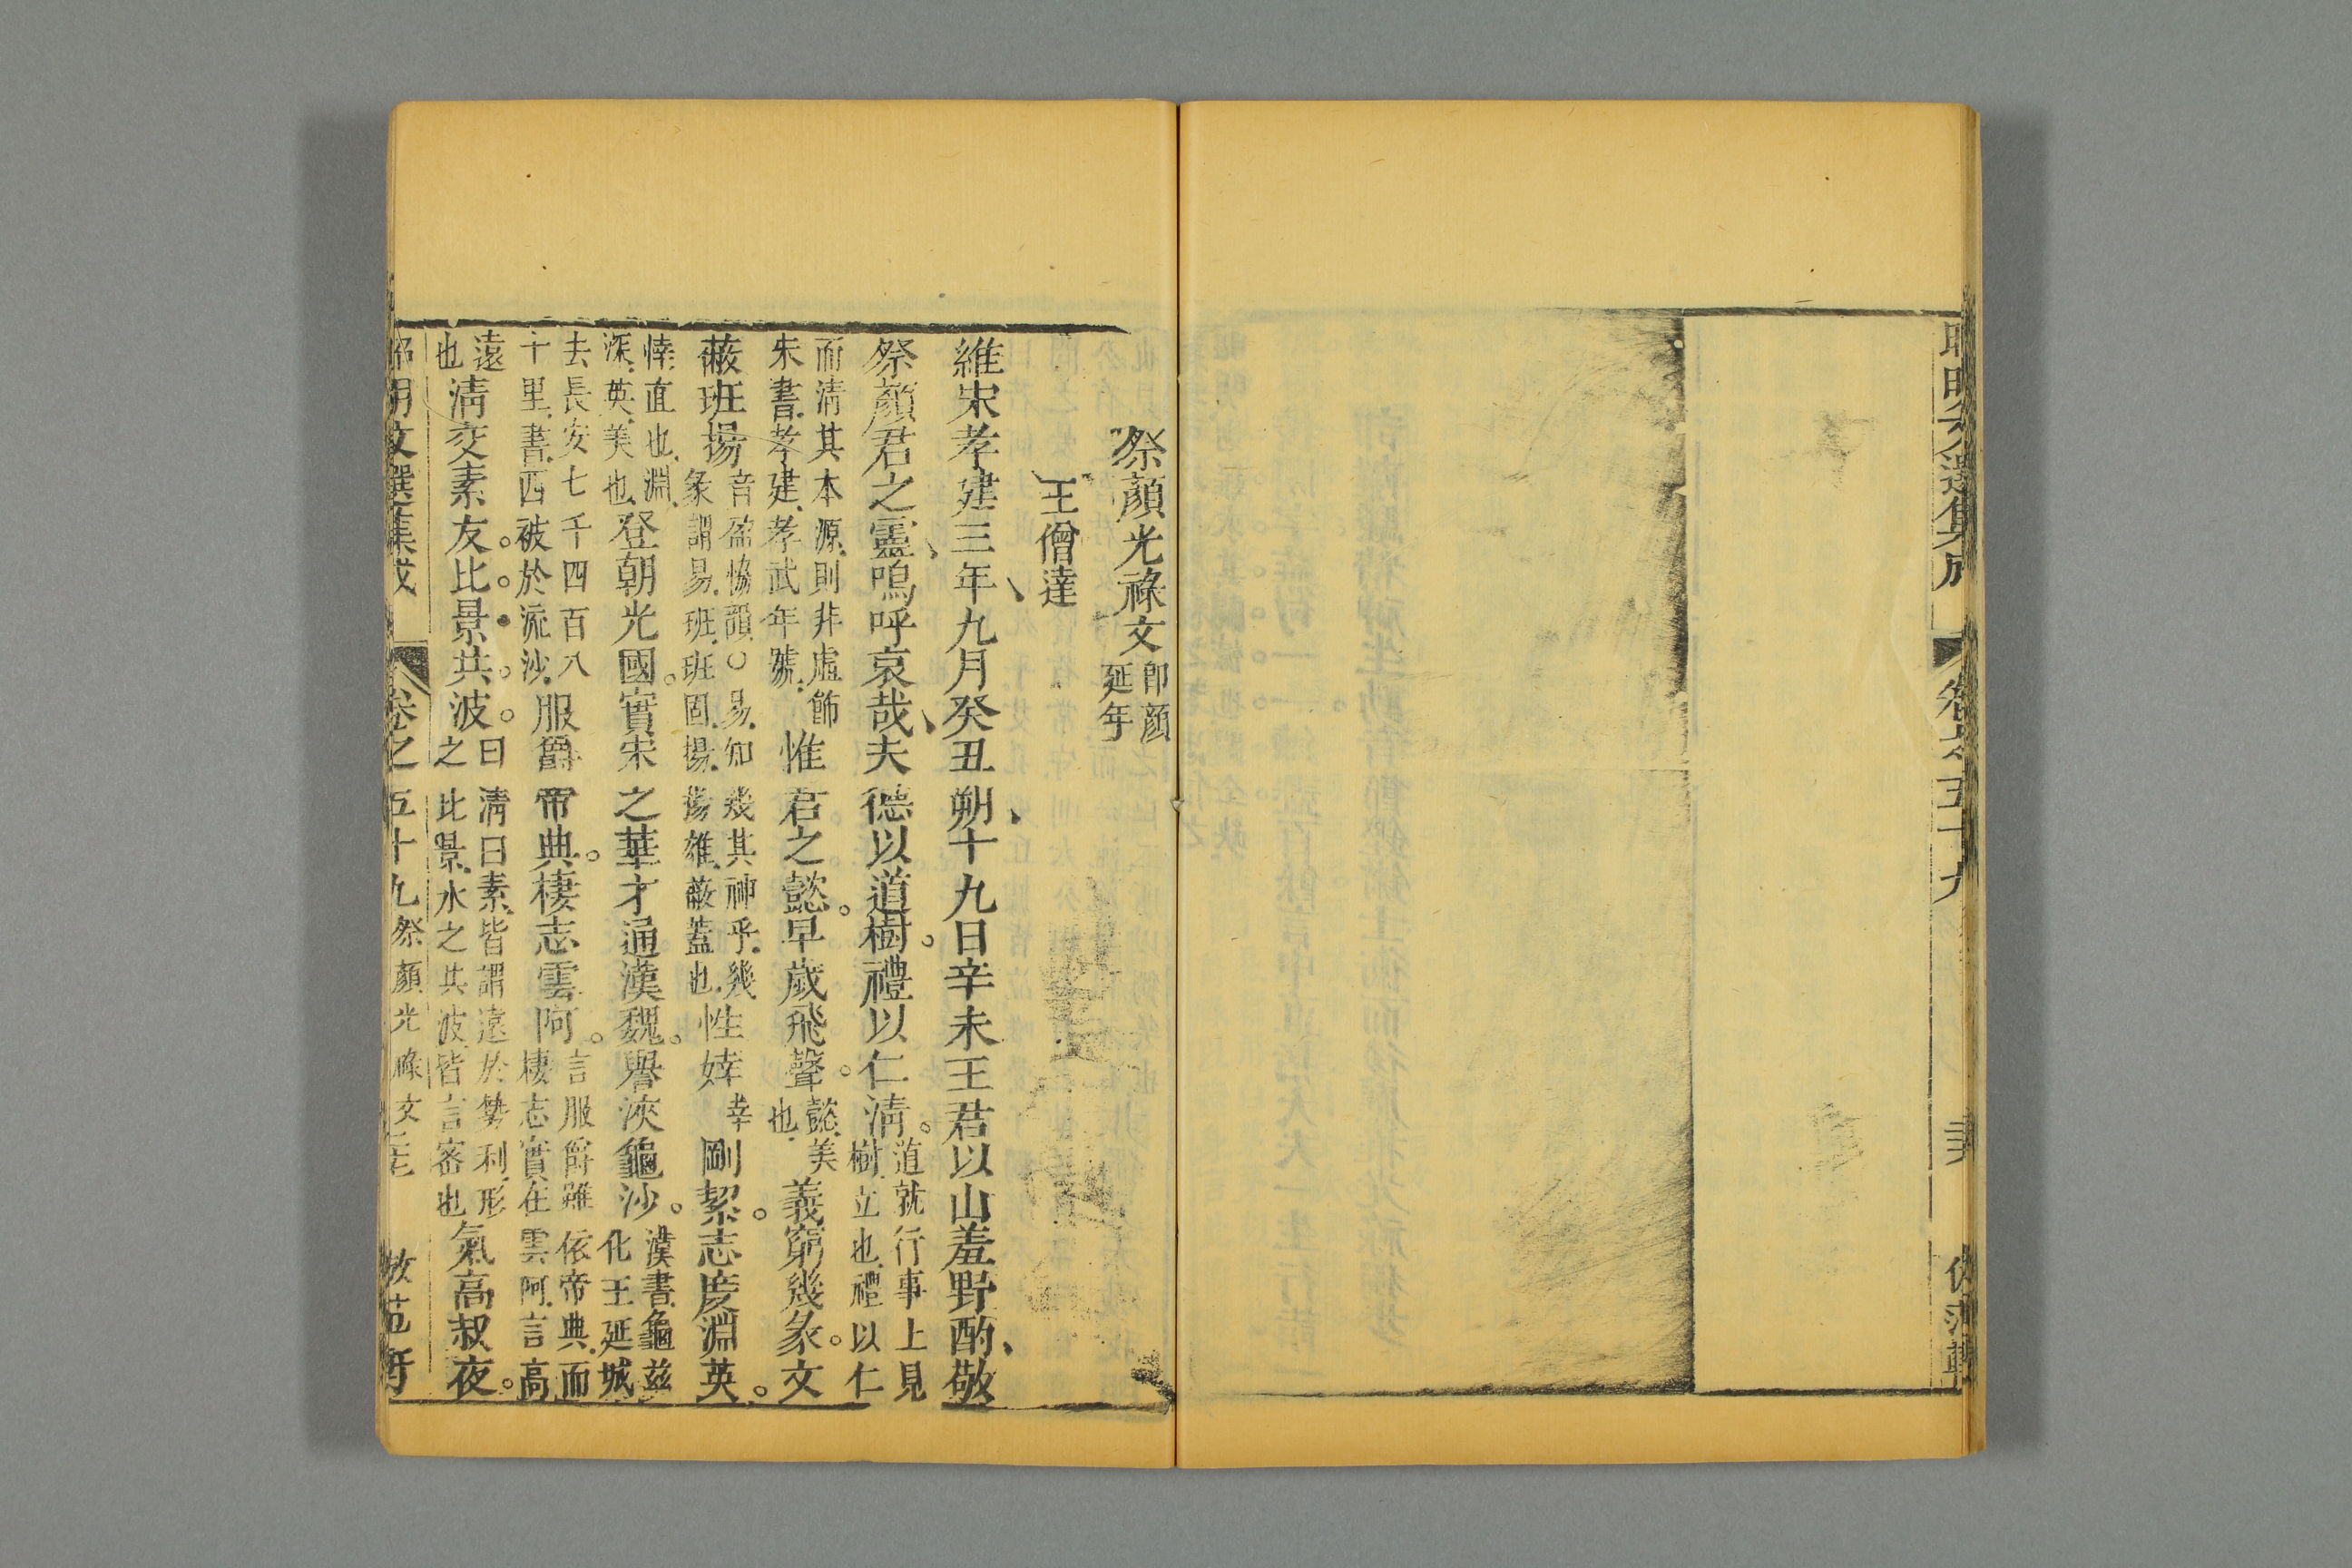 昭明文選集成 卷之五十九
祭顏光祿文 即顏延年
王僧達
維宋孝建三年九月癸丑朔十九日辛未王君以山羞野酌敬
祭顏君之靈嗚呼哀哉夫德以道樹禮以仁清 道就行事上見樹立也禮以仁
而清其本源則非虛飾 宋書孝建孝武年號 惟君之懿早歲飛聲 懿美也 義窮幾彖文
蔽班揚 音盈協韻○易知幾其神乎幾彖謂易班班固揚揚雄蔽蓋也 性婞 幸 剛絜志度淵英
婞直也淵深英美也 登朝光國實宋之華才通漢魏譽浹龜沙 漢書龜茲化王延城
去長安七千四百八十里書西被於流沙 服爵帝典棲志雲阿 言服爵雖依帝典而棲志實在雲阿言高
遠也 清交素友比景共波 曰清曰素皆謂遠於勢利形之比景水之共波皆言密也 氣高叔夜
昭明文選集成 卷之五十九 祭顏光祿文 倣范軒